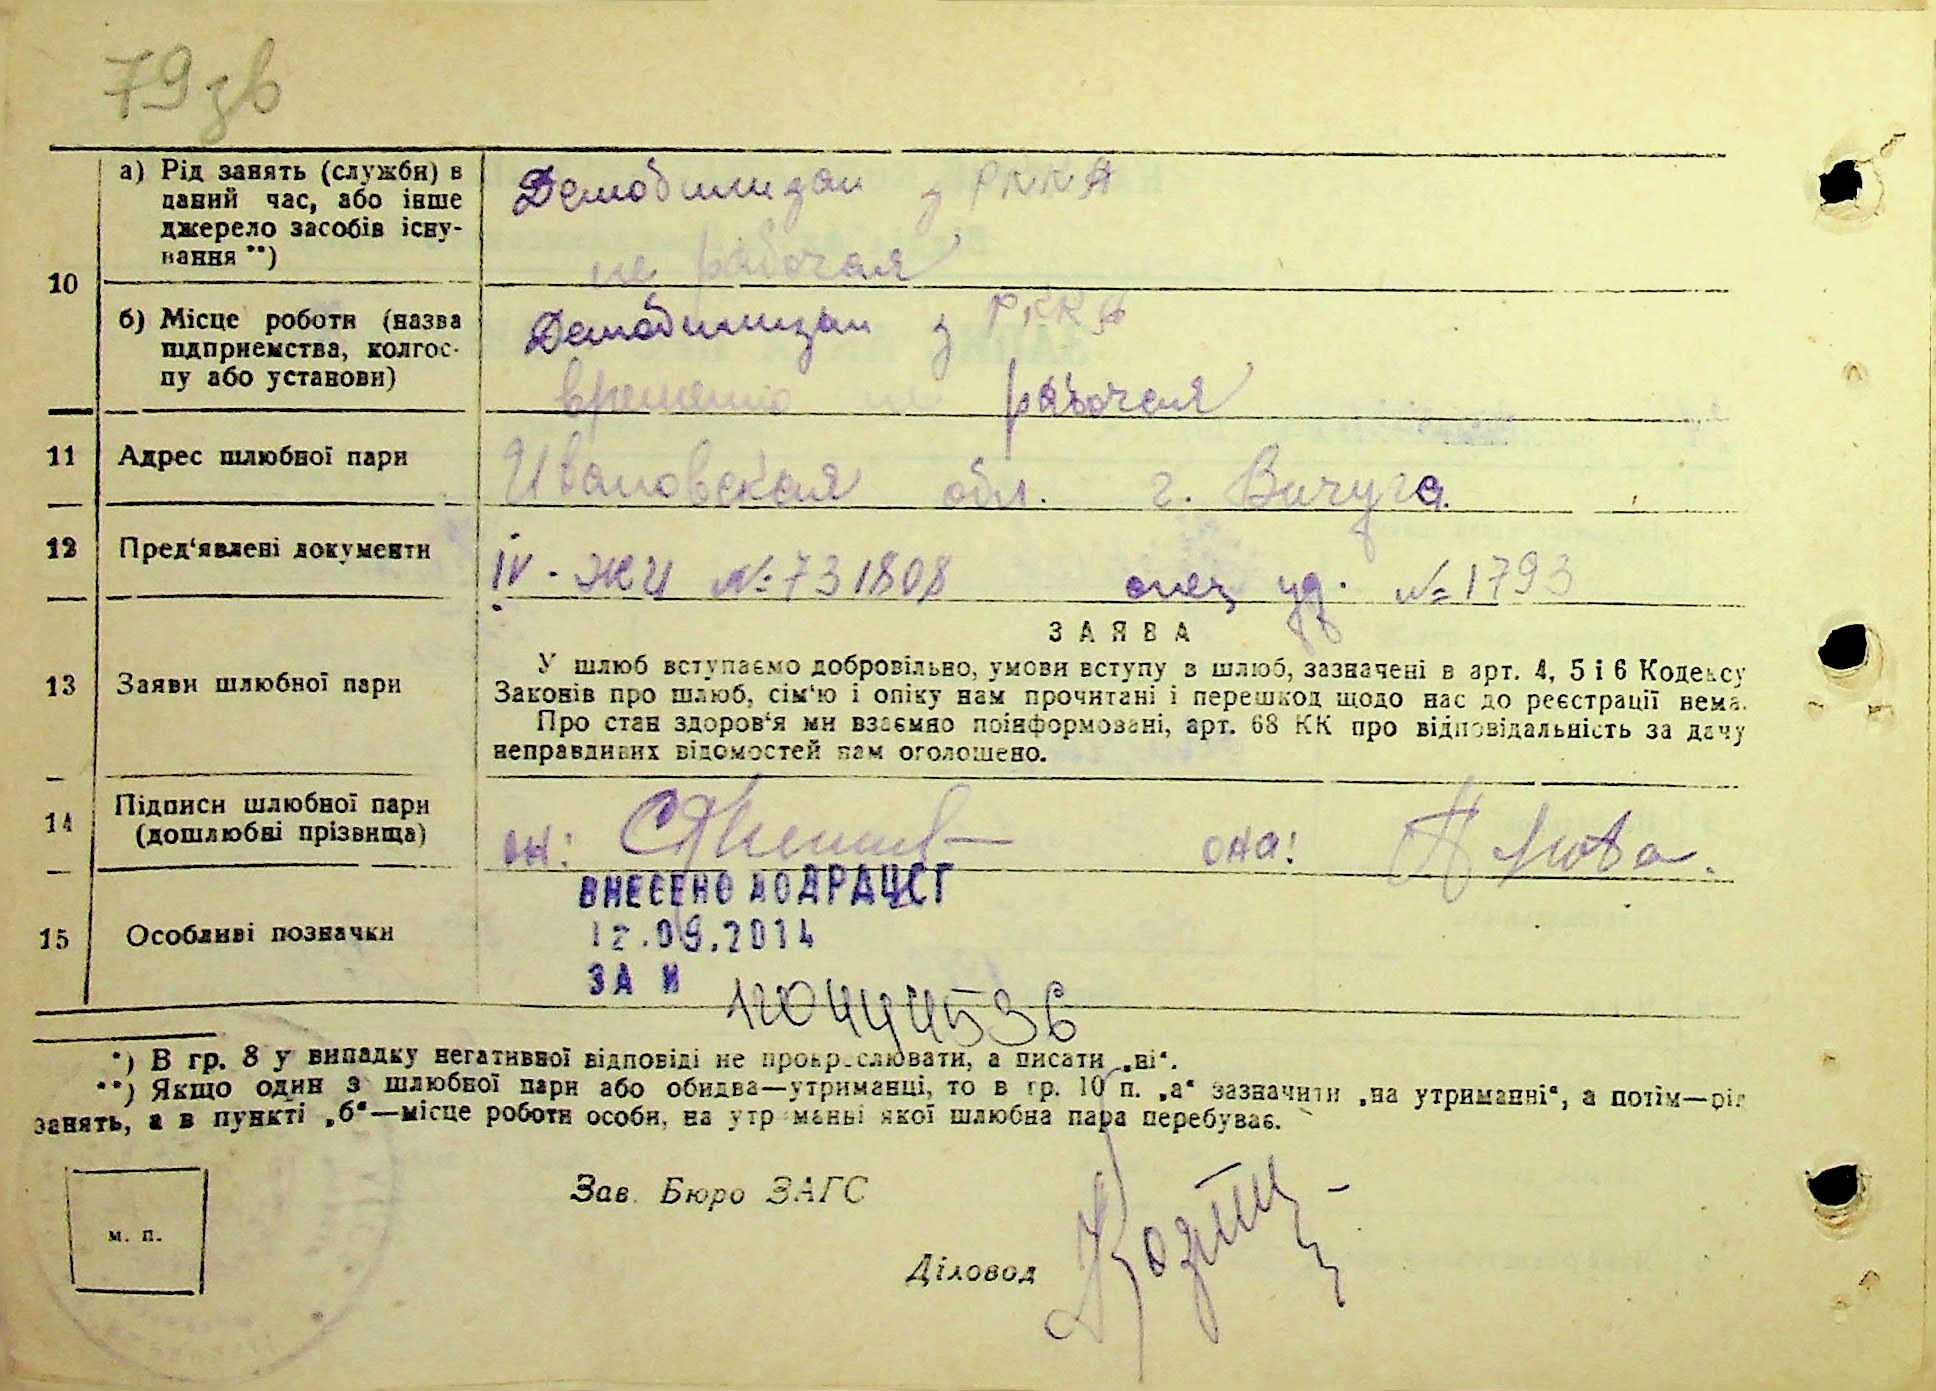 79зв
10
а) Рід занять (служби) в
даний час, або інше
джерело засобів існу-
вання **)
Демобилизан з РККА
не рабочая
б) Місце роботи (назва
підприємства, колгос-
пу або установи)
Демобилизан з РККА
временно не рабочая
11 Адрес шлюбної пари Ивановская обл. г. Вичуга
12 Пред'явлені документи IV - ЖИ №731808 опец уд. №1793
13 Заяви шлюбної пари
ЗАЯВА
У шлюб вступаємо добровільно, умови вступу в шлюб, зазначені в арт. 4, 5 і 6 Кодексу
Законів про шлюб, сім'ю і опіку нам прочитані і перешкод щодо нас до реєстрації нема.
Про стан здоров'я ми взаємно поінформовані, арт. 68 КК про відповідальність за дачу
неправдивих відомостей нам оголошено.
14 Підписи шлюбної пари
(дошлюбні прізвища)
он: она:
15 Особливі позначки
ВНЕСЕНО ДО ДРАЦСГ
12.09.2014
ЗА N 120444536
*) В гр. 8 у випадку негативної відповіді не прокреслювати, а писати „ні“.
**) Якщо один з шлюбної пари або обидва—утриманці, то в гр. 10 п. „а“ зазначити „на утриманні“, а потім—рід
занять, а в пункті „б“—місце роботи особи, на утриманні якої шлюбна пара перебуває.
м. п.
Зав. Бюро ЗАГС
Діловод